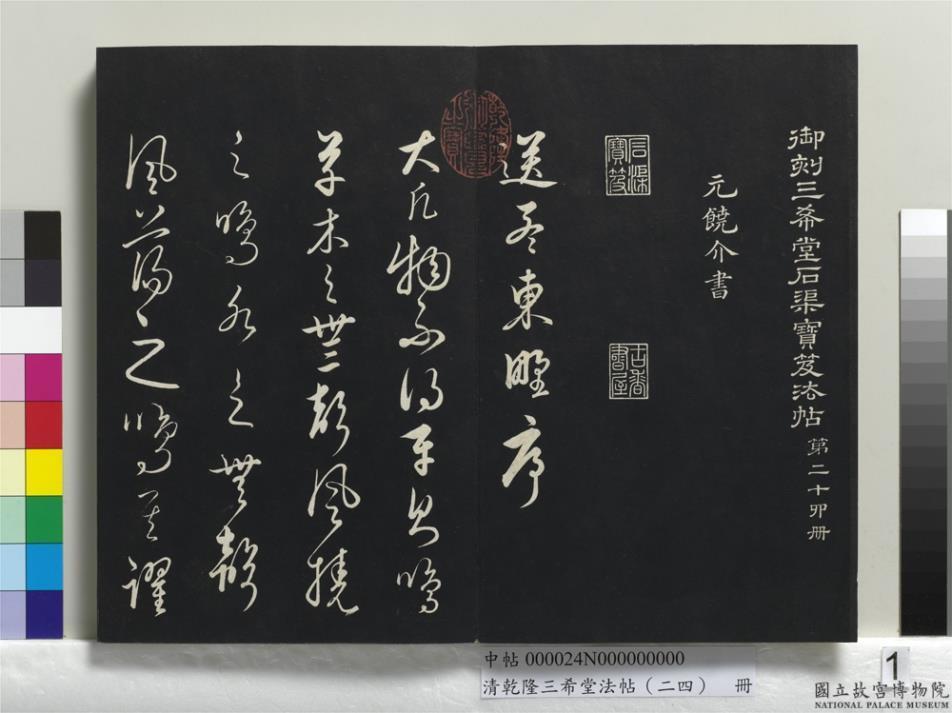 御刻三希堂石渠寶笈法帖 第二十四冊
元饒介書
石渠寶笈
古香書屋
送孟東野序
大凡物不得平則鳴
草木之無聲風撓
之鳴水之無聲
風蕩之鳴其躍
中帖 000024N000000000
清乾隆三希堂法帖（二四） 冊
1
國立故宮博物院
NATIONAL PALACE MUSEUM